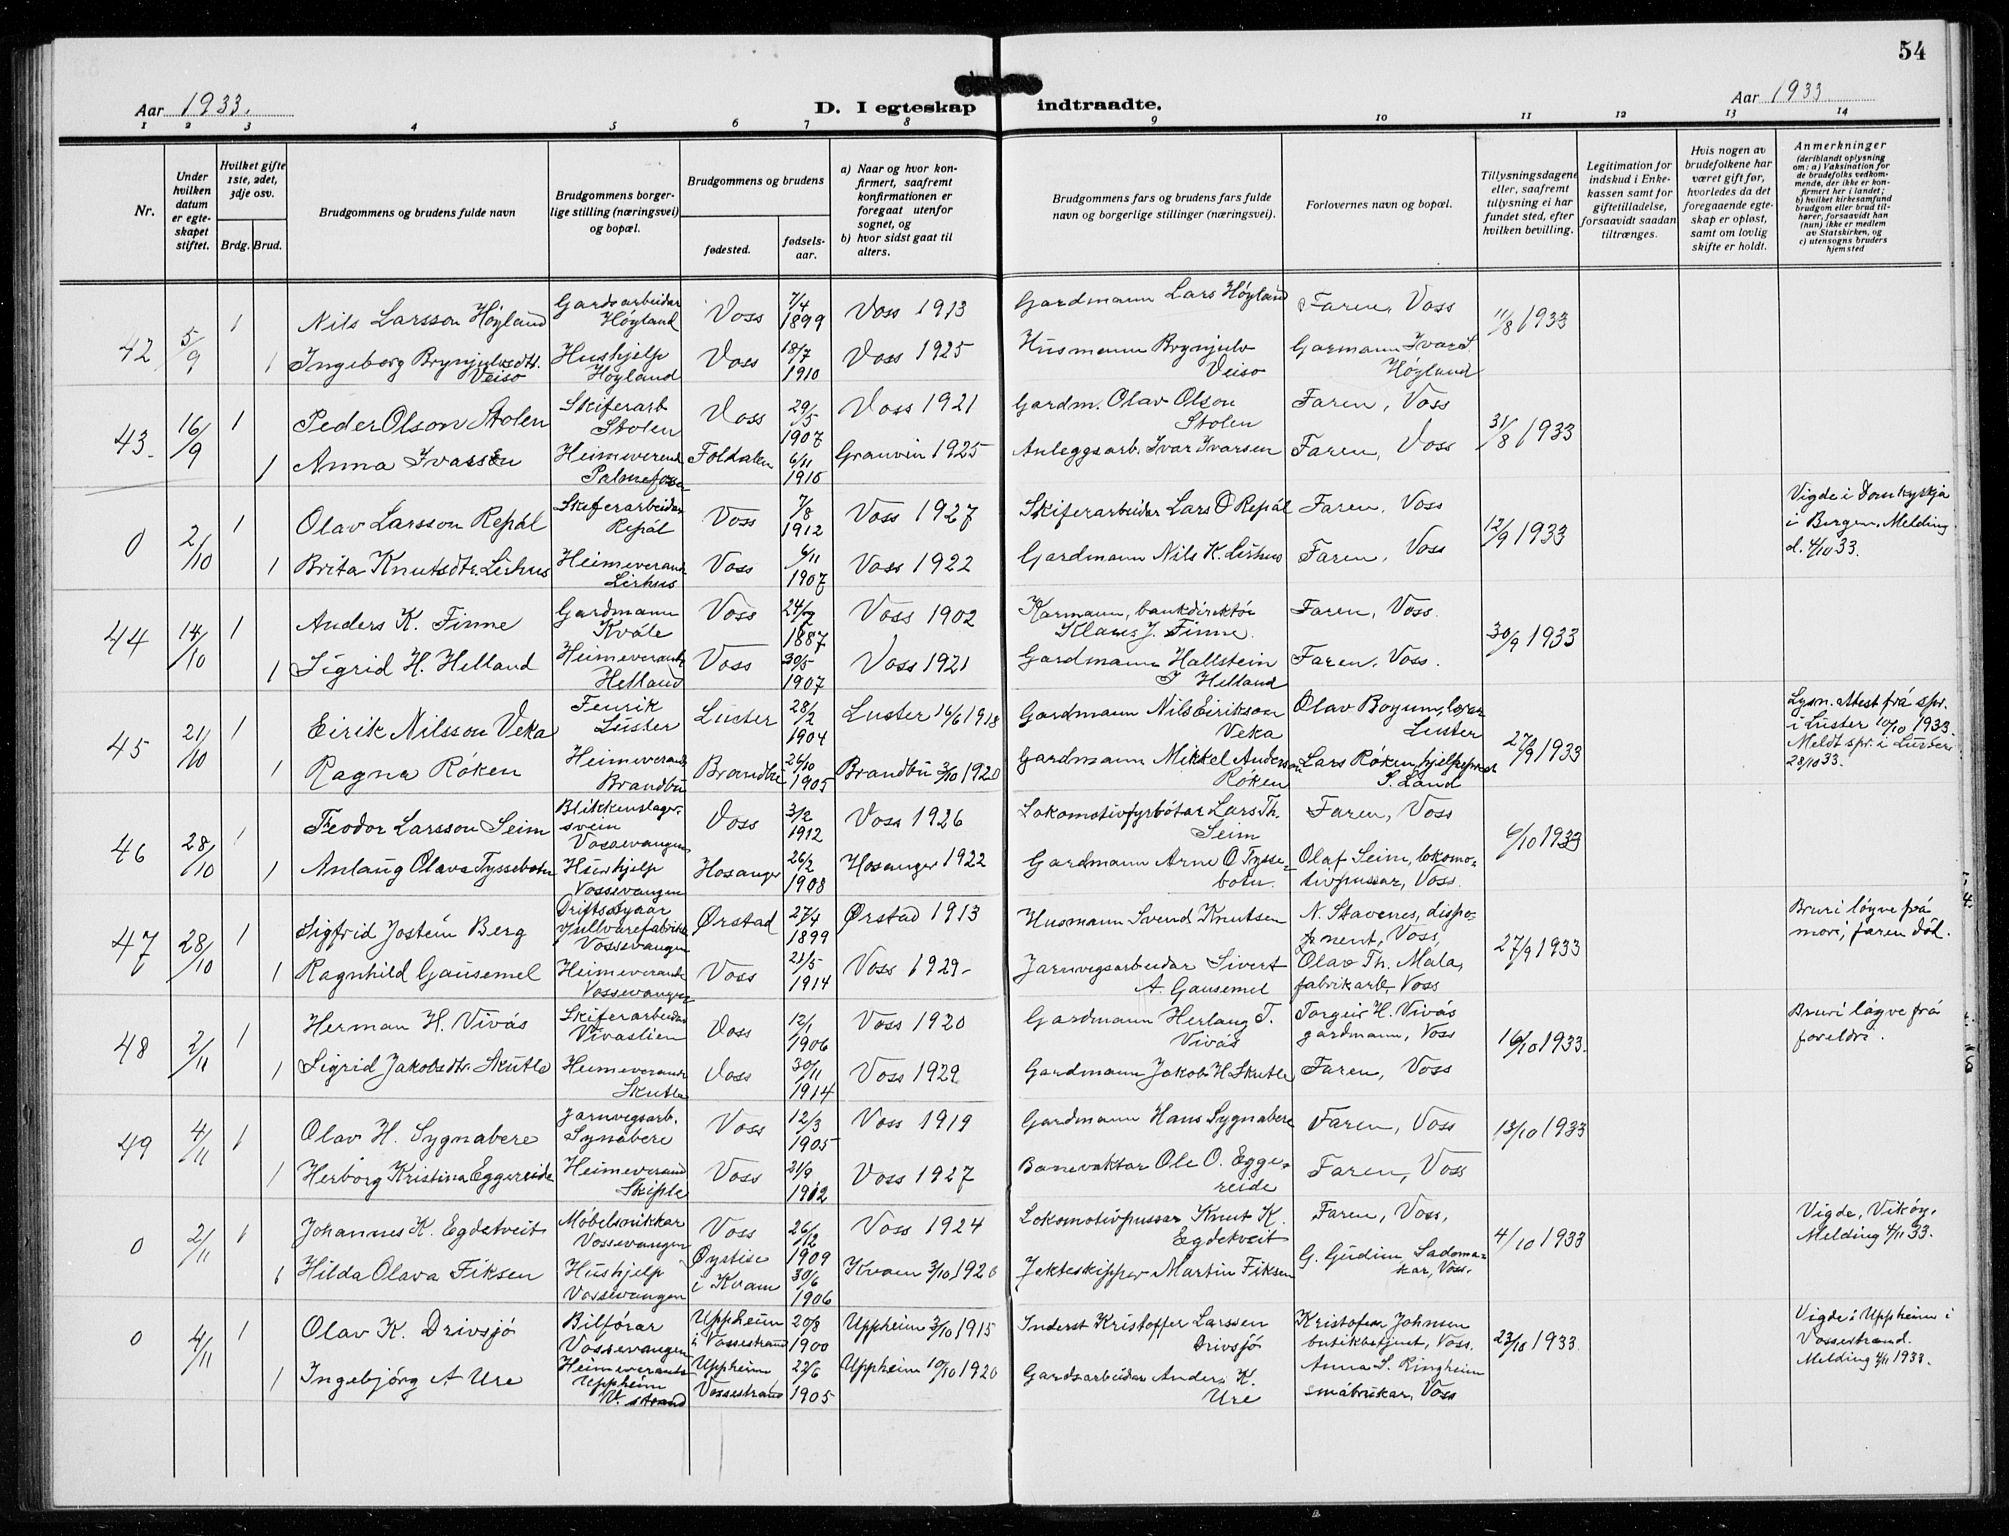 54
Aar 1933.
D. I egteskap indtraadte.
Aar 1933
1 2 3 4 5 6 7 8 9 10 11 12 13 14
Nr.
Under hvilken datum er egteskapet stiftet.
Hvilket gifte 1ste, 2det, 3dje osv.
Brdg. Brud.
Brudgommens og brudens fulde navn
Brudgommens borgerlige stilling (næringsvei) og bopæl.
Brudgommens og brudens
fødested.
fødselsaar.
a) Naar og hvor konfirmert, saafremt konfirmationen er foregaat utenfor sognet, og
b) hvor sidst gaat til alters.
Brudgommens fars og brudens fars fulde navn og borgerlige stillinger (næringsvei).
Forlovernes navn og bopæl.
Tillysningsdagene eller, saafremt tillysning ei har fundet sted, efter hvilken bevilling.
Legitimation for indskud i Enkekassen samt for giftetilladelse, forsaavidt saadan tiltrænges.
Hvis nogen av brudefolkene har været gift før, hvorledes da det foregaaende egteskap er opløst, samt om lovlig skifte er holdt.
Anmerkninger
(deriblandt oplysning om: a) Vaksination for de brudefolks vedkommende, der ikke er konfirmert her i landet; b) hvilket kirkesamfund brudgom eller brud tilhører, forsaavidt han (hun) ikke er medlem av Statskirken, og c) utensogns bruders hjemsted
42 5/9 1 Nils Larsson Høyland Gardsarbeidar Høyland Voss 7/4 1899 Voss 1913 Gardmann Lars Høyland Faren, Voss 11/8 1933
1 Ingeborg Brynjulvsdtr. Veiso Hushjelp Høyland Voss 18/7 1910 Voss 1925 Husmann Brynjulv Veiso Garmann Ivar S. Høyland
43. 16/9 1 Peder Olson Stolen Skiferarb Stolen Voss 29/5 1907 Voss 1921 Gardm. Olav Olson Stolen Faren, Voss 31/8 1933
1 Anna Ivarsen Heimeverend Foldalen 6/11 Granvin 1925 Anleggsarb. Ivar Ivarsen Faren, Voss
0 2/10 1 Olav Larsson Repål Skiferarbeidar Repål Voss 7/8 1912 Voss 1927 Skiferarbeidar Lars O Repål Faren, Voss 12/9 1933 Vigde i Domkyrkja i Bergen. Melding d. 4/10 33.
1 Brita Knutsdtr. Lirhus Heimeverand Lirhus Voss 6/11 1907 Voss 1922 Gardmann Nils K. Lirhus Faren, Voss
44 14/10 1 Anders K. Finne Gardmann Kvåle Voss 1887 Voss 1902 Karmann, bankdirektør Klaus J. Finne. Faren, Voss. 30/9 1933
1 Sigrid H. Helland Heimeverande Helland Voss 30/5 1907 Voss 1921 Gardmann Hallstein J Helland Faren, Voss.
45 21/10 1 Eirik Nilsson Veka Fenrik Luster Luster 28/2 1904 Luster 16/6 1918 Gardmann Nils Eirikson Veka Olav Boyum, lærar Luster 27/9 1933 Lysn. Attest frå spr. i Luster 10/10 1933. Meldt spr. i Luster 28/10 33.
1 Ragna Røken Heimeverand Brandbu Brandbu 26/10 1905 Brandbu 3/10 1920 Gardmann Mikkel Anderson Røken Lars Røken, hjelpeprest S. Land
46 28/10 1 Teodor Larsson Seim Blikkenslagersvein Vossevangen Voss 3/2 1912 Voss 1926 Lokomotivfyrbøtar Lars Th. Seim Faren, Voss 6/10 1933
1 Anlaug Olava Tyssebotn Hushjelp Vossevangen Hosanger 26/2 1908 Hosanger 1922 Gardmann Arne O Tyssebotn. Olaf Seim, lokomotivpussar, Voss.
47 28/10 1 Sigfrid Jostein Berg Driftsstyrar Vossevangen Ørstad 27/4 1899 Ørstad 1913 Husmann Svend Knutsen N. Stavenes, disponent, Voss, 27/9 1933 Bruri løyve frå mori, faren død.
1 Ragnhild Gausemel Heimeverande Vossevangen Voss 21/5 1914 Voss 1929- Jarnvegsarbeidar Sivert A. Gausemel Olav Th. Mala, fabrikarb, Voss
48 3/11 1 Herman H. Vivås Skiferarbeidar Vivaslien Voss 12/1 1906 Voss 1920 Gardmann Herlaug T. Vivås Torgeir H. Vivås gardmann, Voss 16/10 1933. Bruri løyve frå foreldri.
1 Sigrid Jakobsdtr. Skutle Heimeverande Skutle Voss 30/11 1914 Voss 1929 Gardmann Jakob H Skutle Faren, Voss
49 4/11 1 Olav H. Sygnabere Jarnvegsarb. Synabere Voss 12/3 1905 Voss 1919 Gardmann Hans Sygnabere Faren, Voss 13/10 1933
1 Herborg Kristina Eggereide Heimeverand Skiple Voss 21/9 1912 Voss 1927 Banevaktar Ole O. Eggereide Faren, Voss
0 2/11 1 Johannes K. Egdetveit Møbelsnikkar Vossevangen Voss 26/12 1909 Voss 1924 Lokomotivpussar Knut K. Egdetveit Faren, Voss, 4/10 1933 Vigde, Vikøy. Melding 4/11 33.
1 Hilda Olava Fiksen Hushjelp Vossevangen Øystise i Kvam 30/6 1906 Kvam 3/10 1920 Jekteskipper Martin Fiksen G. Gudim Sadomakar, Voss.
0 4/11 1 Olav K. Drivsjø Bilførar Vossevangen Uppheim i Vossestrand 20/8 1900 Uppheim 3/10 1915 Inderst Kristoffer Larssen Drivsjø Kristofer Johnsen butikbetjent, Voss. 23/10 1933. Vigde i Uppheim i Vossestrand. Melding 4/11 1933.
1 Ingebjørg A Ure Heimeverande Uppheim V. strand Uppheim Vossestrand 22/6 1905 Uppheim 10/10 1920 Gardsarbeidar Anders K. Ure Anna S. Ringheim småbrukar, Voss